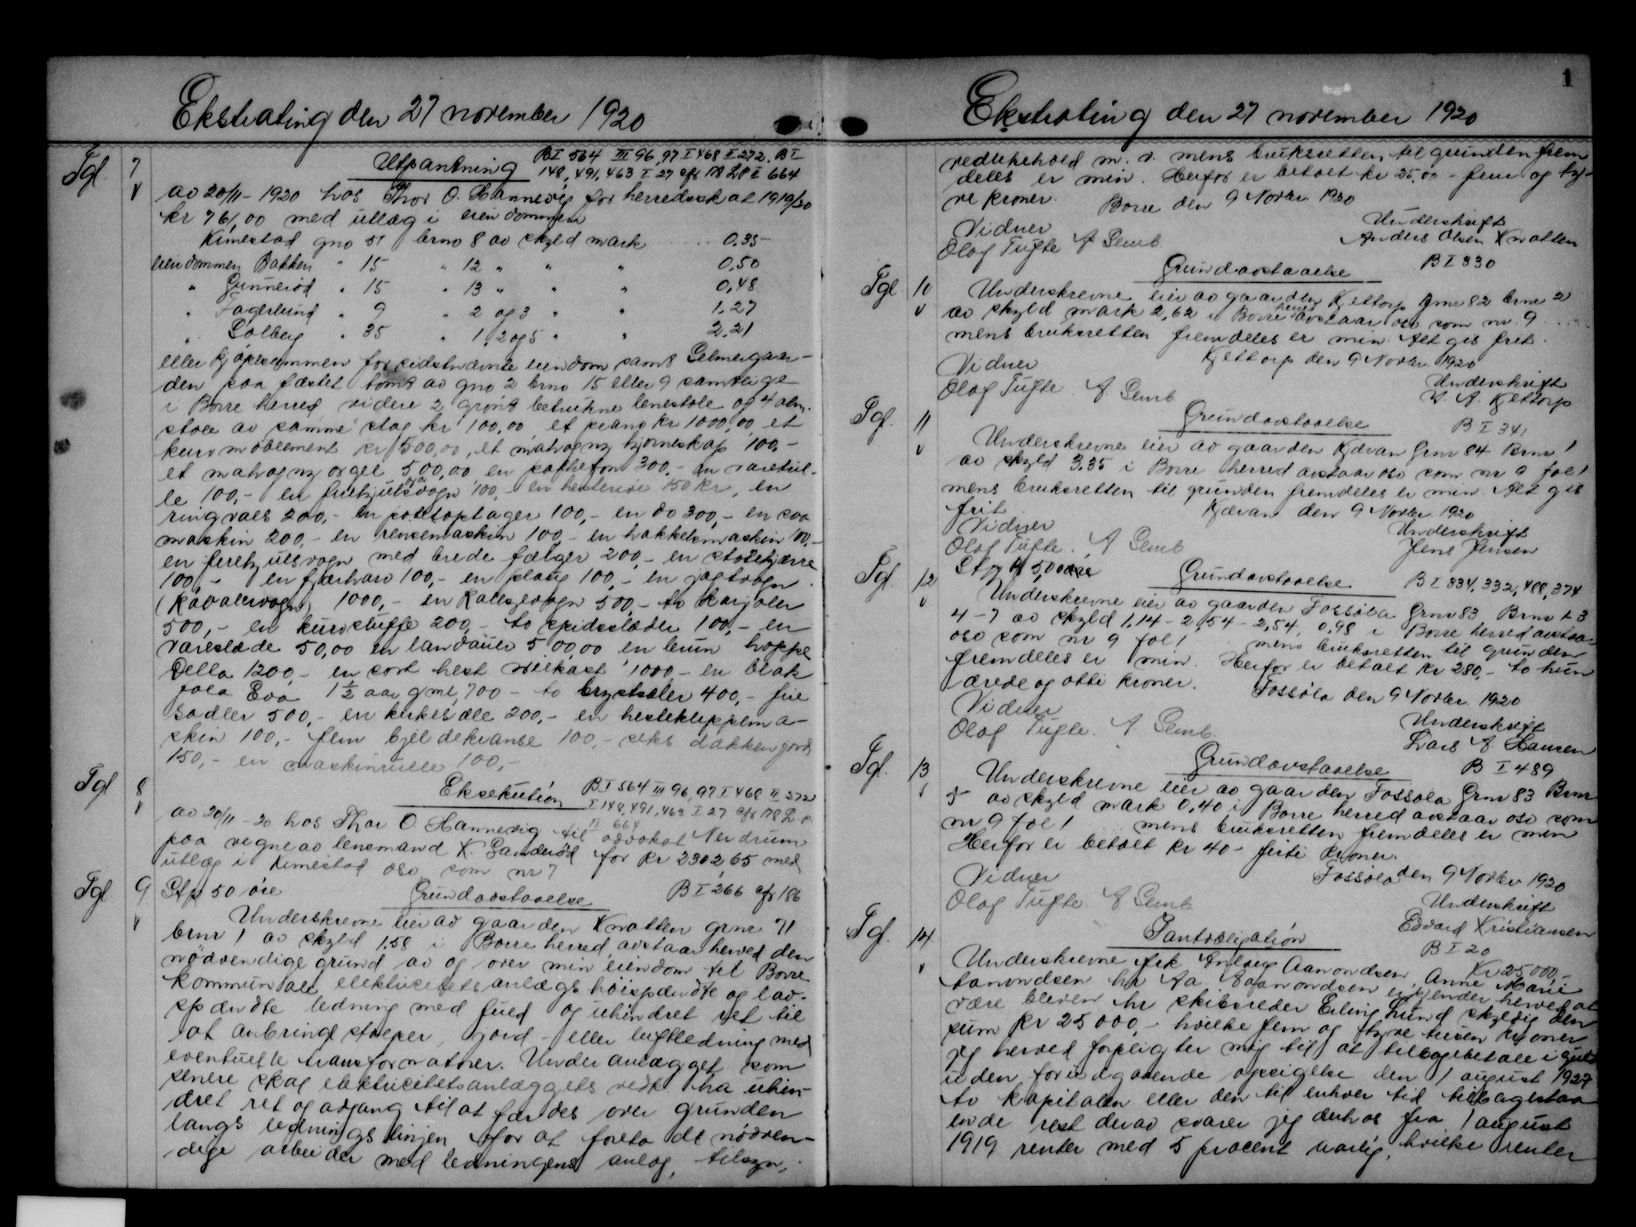 Ekstrating den 27 november 1920
Tgl. 7 Utpantning BI 564 III 96, 97 I 468 II 272. BI
148, 491, 463 I 27 cfr I 664
av 20/11-1920 hos Thor O. Hannevig for herredsskat 1919/20
kr 761,00 med utlæg i eiendommen
Kimestad gno 51 brno 8 av skyld mark 0.35
eiendommen Bakken " 15 " 12 " " " 0,50
" Gunnerød " 15 " 13 " " 0,48
" Fagerlund " 9 " 2 og 3 " " 1,27
" Solberg " 35 " 1, 2 og 5 " " 2,21
eller kjøpesummen for sidstnævnte eiendom samt Selmergaar-
den paa fæstet tomt av gno 2 brno 15 eller 9 samtlige
i Borre herred, videre 2 grønt betrukne lenestole og 4 alm.
stole av samme slag kr 100,00 et piano kr 1000,00 et
kurvmøblement kr 500,00, et mahogny hjørneskap 100,-
et mahogny orgel 500,00 en pathefon 300,- en varetril-
le 100,- en firehjulsvogn 100,- en hesterive 150 kr, en
ringvals 200,- en potetoptager 100,- en do 300,- en saa
maskin 200,- en rensemaskin 100,- en hakkelsmaskin 100,-
en firehjulsvogn med brede fælger 200,- en støtekjærre
100,- en fjærharv 100,- en plog 100,- en jagtvogn
(Kavalervogn) 1000,- en Kalesjevogn 500,- to karjoler
500,- en kurvsluffe 200,- to spidsslæder 100,- en
vareslæde 50,00 en landauer 500,00 en brun hoppe
Della 1200,- en sort hest 1000,- en blak
fole Eva 1 1/2 aar gml, 700 - to brystseler 400,- fire
sadler 500,- en kirkesæle 200,- en hesteklippema-
skin 100,- fem bjeldekranse 100,- seks dækkengjord
150,- en maskinrulle 100,-
Tgl 8 Eksekution BI 564 III 96, 97 I 468 II 272
I 148, 491, 463 I 27 cfr
II 664
av 20/11-20 hos Thor O. Hannevig til advokat Nerdrum
paa vegne av lensmand K. Sanderød for kr 2302,65 med
utlæg i Kimestad osv som nr 7
Tgl 9 Stp 50 øre Grundavstaaelse BI 266 cfr 186
Underskrevne eier av gaarden Knatten grnr 71
brnr 1 av skyld 1,58 i Borre herred, avstaar herved den
nødvendige grund av og over min eiendom til Borre
kommunale elektricitetsanlægs høispændte og lav-
spændte ledning med fuld og uhindret ret til
at anbringe stolper, jord- eller luftledning med
eventuelle transformatorer. Under anlægget som
senere skal elektricitetsanlæggets vedk. ha uhin-
dret ret og adgang til at færdes over grunden
langs ledningslinjen for at foreta de nødven-
dige arbeider med ledningens anlæg, tilsyn,
1
Ekstrating den 27 november 1920
vedlikehold m. v. mens bruksretten til grunden frem
deles er min. Herfor er betalt kr 25,00 - fem og ty-
ve kroner. Borre den 9 Novbr. 1920
Vidner Underskrift
Olaf Tufte A Semb Anders Olsen Knatten
Tgl 10 Grundavstaaelse BI 330
Underskrevne eier av gaarden Kjettorp Grnr 82 brnr 2
av skyld mark 2,62 i Borre herred avstaar osv som nr. 9
mens bruksretten fremdeles er min. Alt gis frit.
Vidner Kjettorp den 9 Novbr. 1920
Olaf Tufte A Semb Underskrift
A. Kjettorp
Tgl. 11 Grundavstaaelse BI 341
Underskrevne eier av gaarden Kjævan Grnr 84 Brnr 1
av skyld 3,35 i Borre herred avstaar osv som nr 9 fol 1
mens bruksretten til grunden fremdeles er min. Alt gis
frit. Kjævan den 9 Novbr. 1920
Vidner Underskrift
Olaf Tufte. A Semb Jens Jensen
Tgl. 12 St. 50 øre Grundavstaaelse BI 334, 332, 488, 374
Underskrevne eier av gaarden Fossøla Grnr 83 Brnr 1-3
4-7 av skyld 1,14 - 2,54 - 2,54, 0,98 i Borre herred avstaar
osv som nr 9 fol 1 mens bruksretten til grunden
fremdeles er min. Herfor er betalt kr 280,- to hun
drede og otti kroner. Fossøla den 9 Novbr 1920
Vidner Underskrift
Olaf Tufte. A Semb. Lars A. Hansen
Tgl. 13 Grundavstaaelse BI 489
Underskrevne eier av gaarden Fossøla Grnr 83 Brnr
5 av skyld mark 0,40 i Borre herred avstaar osv som
nr 9 fol 1 mens bruksretten fremdeles er min
Herfor er betalt kr 40- firti kroner.
Vidner Fossøla den 9 Novbr 1920
Olaf Tufte. A Semb Underskrift
Edvard Kristiansen
Tgl. 14 Pantobligation BI 20
Kr 25000,-
Underskrevne frk Aanondsen, Anne Marie
Aanondsen, Aa Aanondsen erkjender herved at
være bleven hr skibsreder Erling Lund skyldig den
sum kr 25000,- hvilke fem og tyve tusen kroner
jeg herved forpligter mig til at tilbagebetale i guld
uden forutgaaende opsigelse den 1 august 1927
Av kapitalen eller den til enhver tid tilbagestaa
ende rest derav svarer jeg derhos fra 1 august
1919 renter med 5 procent aarlig, hvilke renter